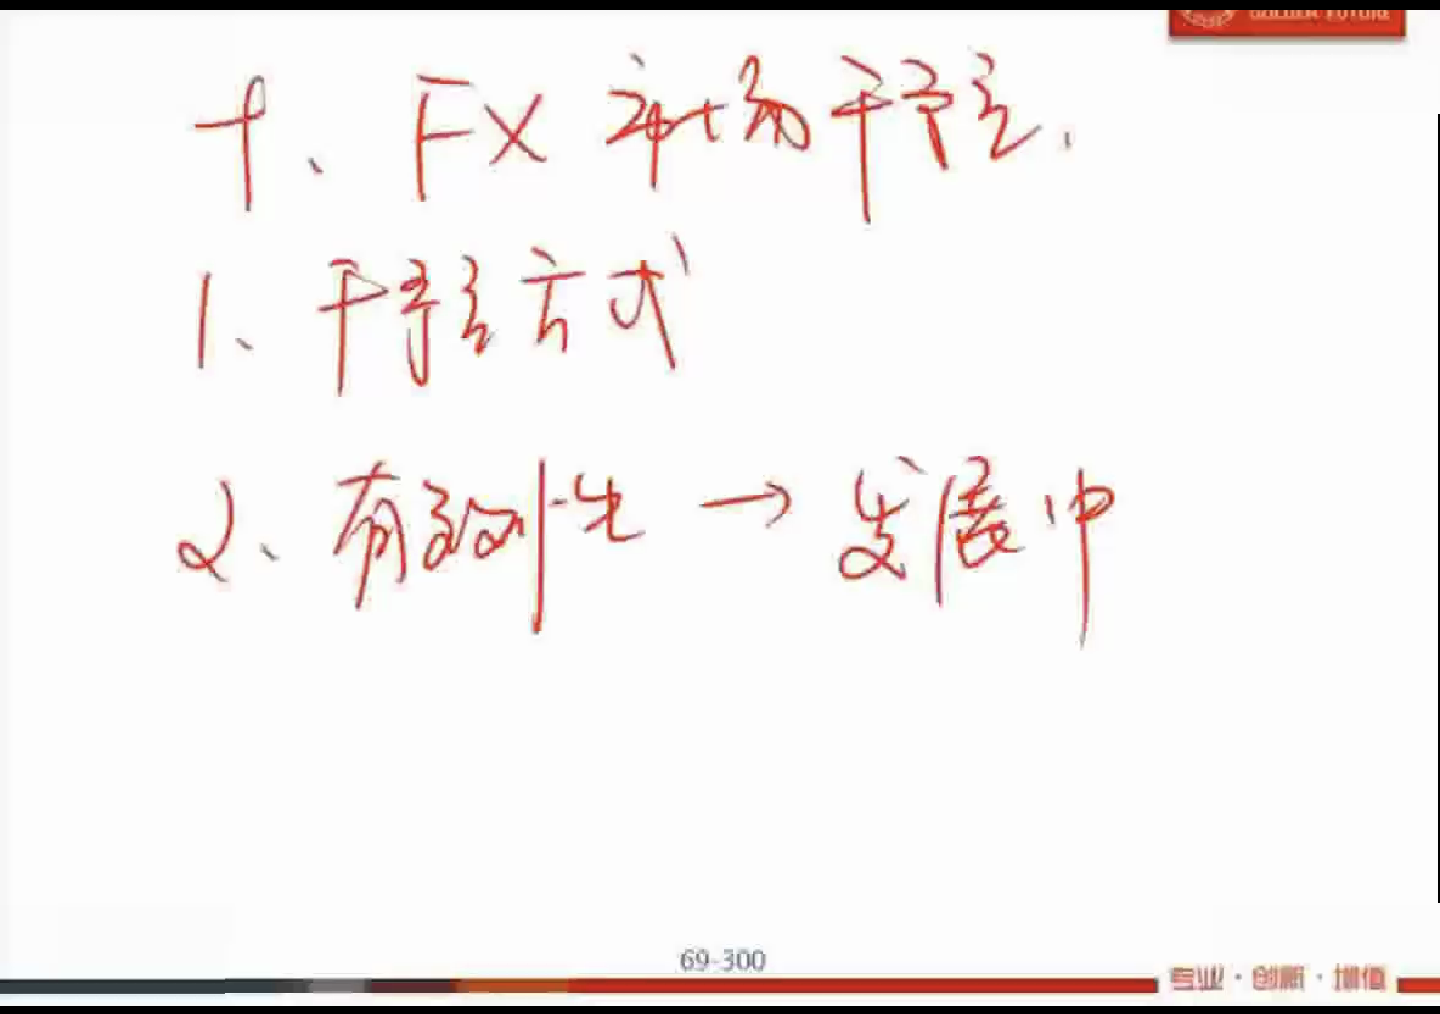 GOLDEN FUTURE
十、FX 市场干预.
1、干预方式
2、有效性 → 发展中
69-300
专业·创新·增值